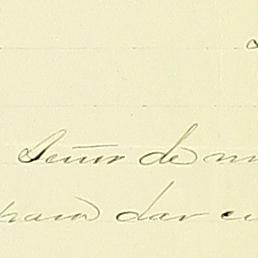 Señor de m
para dar cu